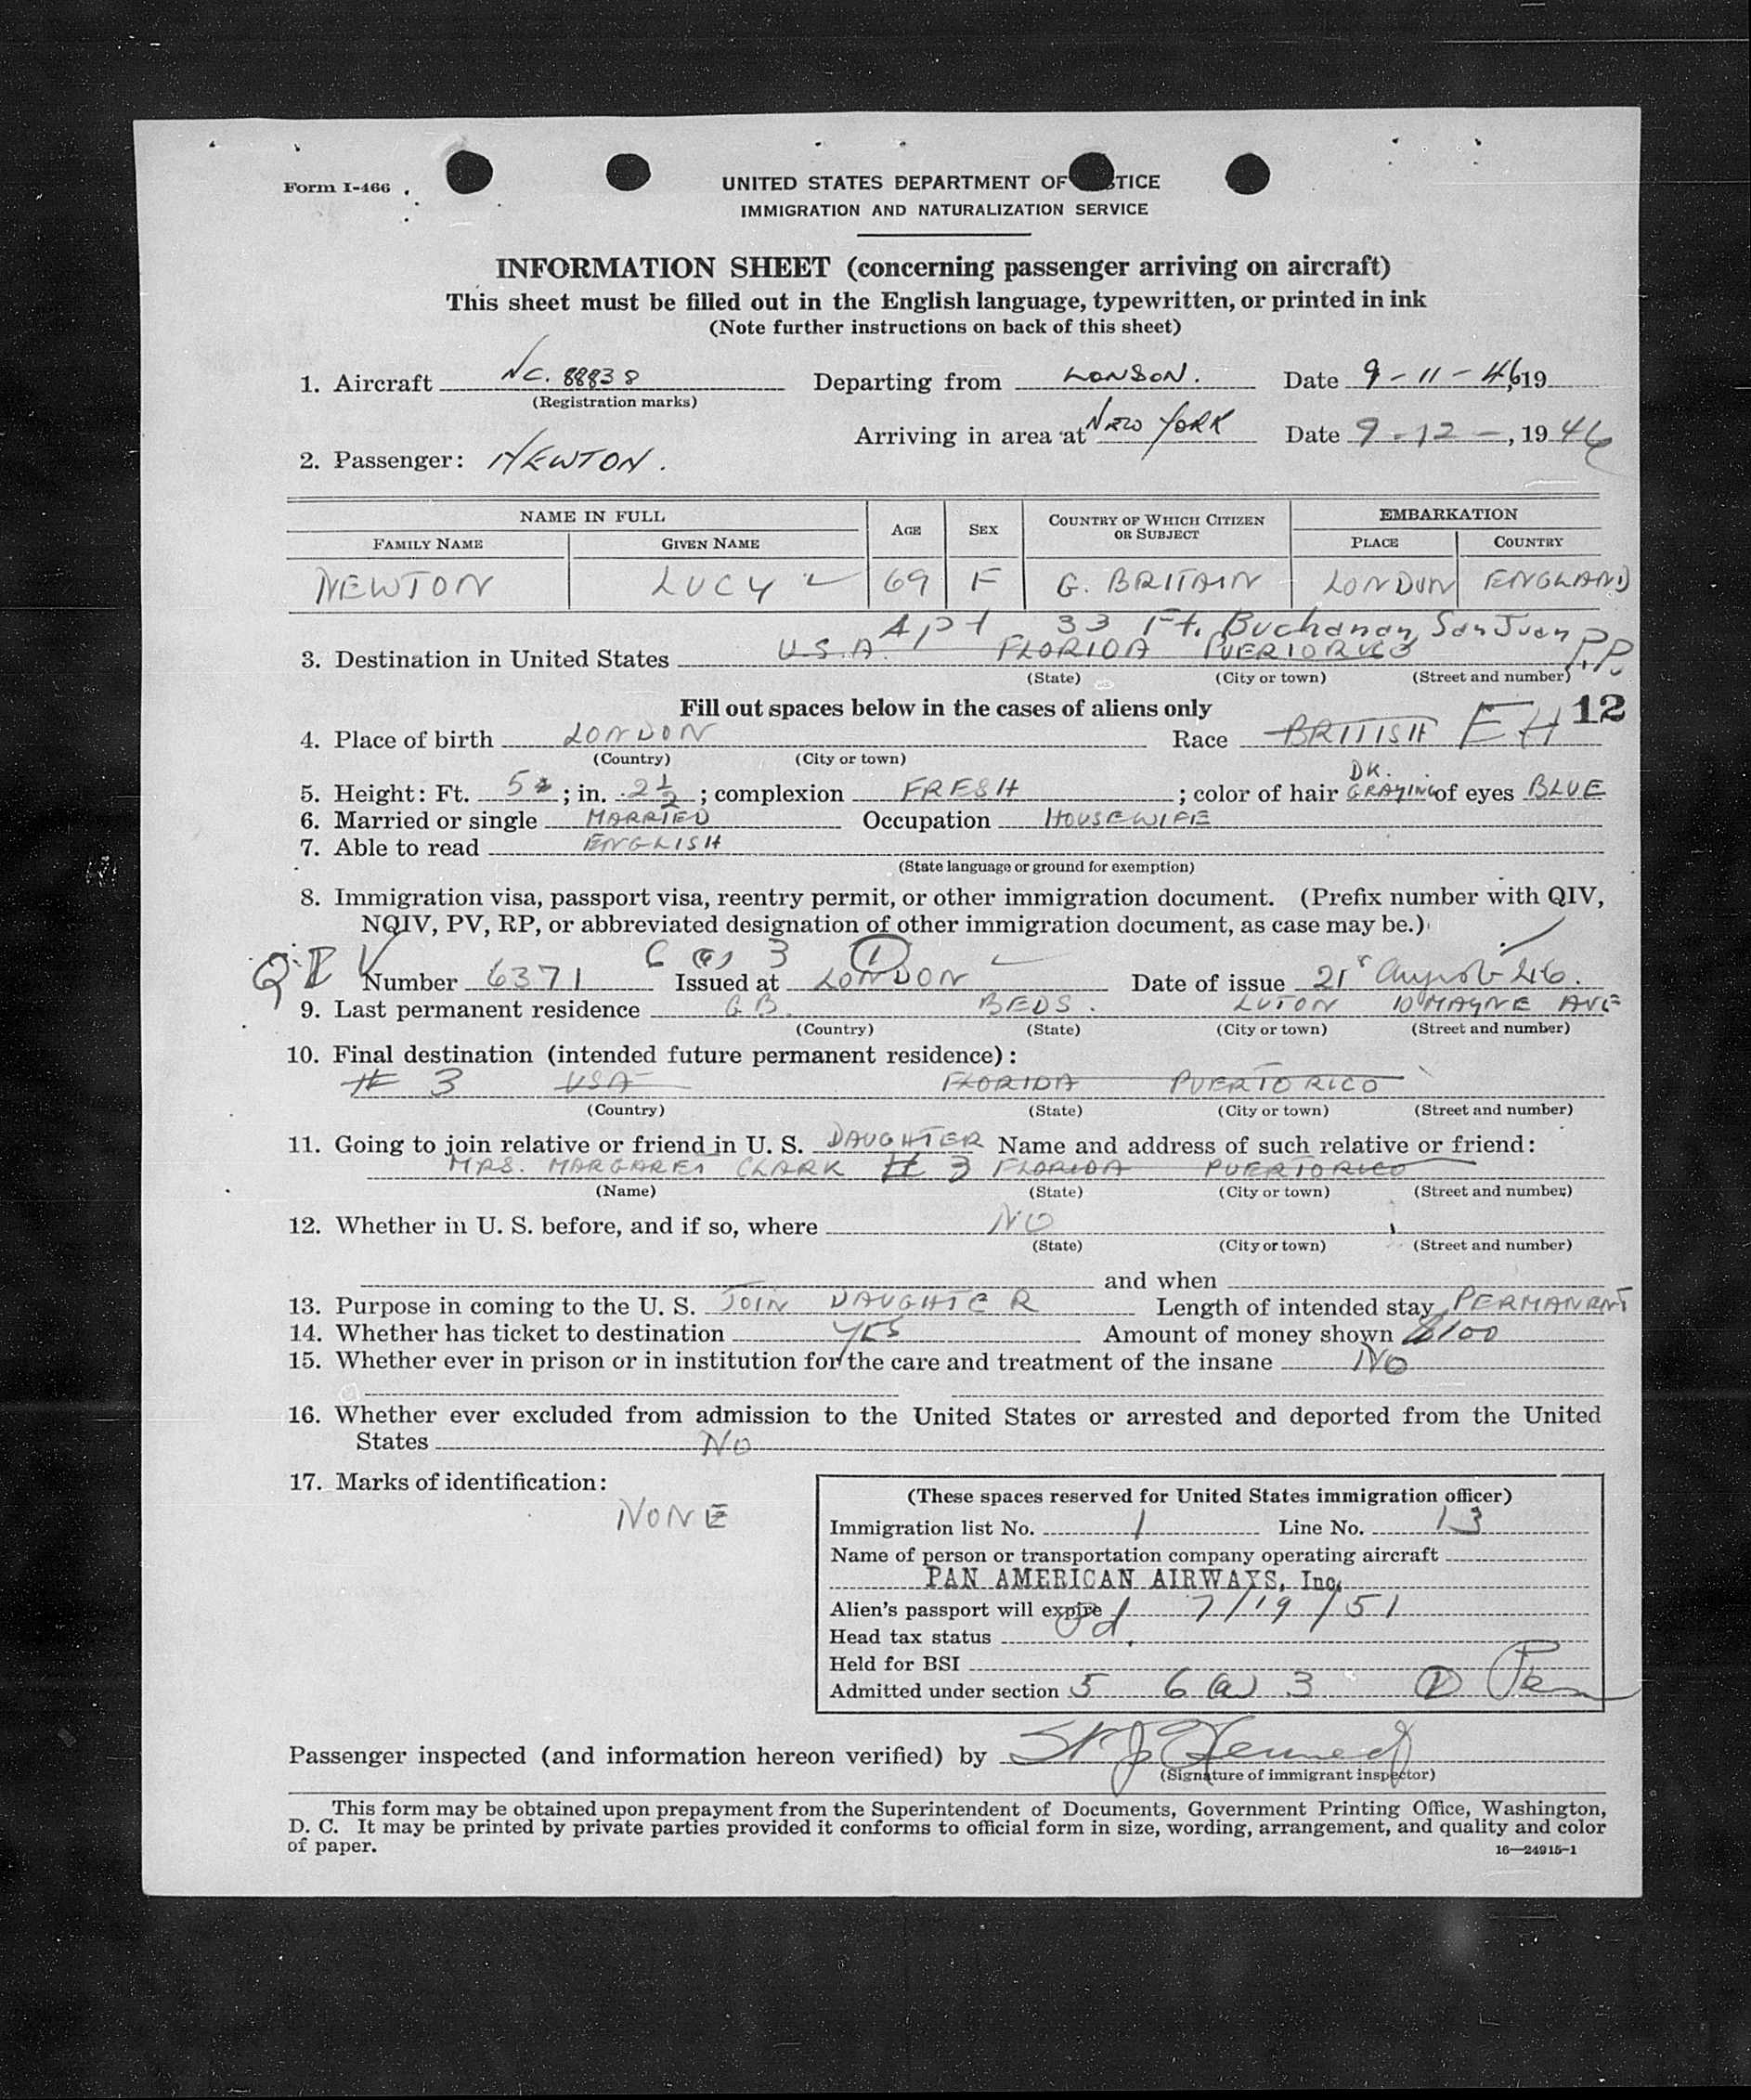 Form I-466
UNITED STATES DEPARTMENT OF TICE
IMMIGRATION AND NATURALIZATION SERVICE
INFORMATION SHEET (concerning passenger arriving on aircraft)
This sheet must be filled out in the English language, typewritten, or printed in ink
(Note further instructions on back of this sheet)
1. Aircraft NC. 88838 Departing from LONDON. Date 9-11-46, 19
(Registration marks)
Arriving in area at NEW YORK Date 9-12-, 1946
2. Passenger: NEWTON.
NAME IN FULL AGE SEX COUNTRY OF WHICH CITIZEN OR SUBJECT EMBARKATION
FAMILY NAME GIVEN NAME PLACE COUNTRY
NEWTON LUCY 69 F G. BRITAIN LONDON ENGLAND
Apt 33 Ft. Buchanan, San Juan P.R.
3. Destination in United States U.S.A. FLORIDA PUERTO RICO
(State) (City or town) (Street and number)
Fill out spaces below in the cases of aliens only 12
4. Place of birth LONDON Race BRITISH EH
(Country) (City or town)
5. Height: Ft. 5; in. 2½; complexion FRESH; color of hair DK. GRAYING of eyes BLUE
6. Married or single MARRIED Occupation HOUSEWIFE
7. Able to read ENGLISH
(State language or ground for exemption)
8. Immigration visa, passport visa, reentry permit, or other immigration document. (Prefix number with QIV,
NQIV, PV, RP, or abbreviated designation of other immigration document, as case may be.)
6 (a) 3 (1)
QIV Number 6371 Issued at LONDON Date of issue 21 August 46.
9. Last permanent residence G.B. BEDS. LUTON 10 MAYNE AVE
(Country) (State) (City or town) (Street and number)
10. Final destination (intended future permanent residence):
# 3 USA FLORIDA PUERTO RICO
(Country) (State) (City or town) (Street and number)
11. Going to join relative or friend in U. S. DAUGHTER Name and address of such relative or friend:
MRS. MARGARET CLARK # 3 FLORIDA PUERTO RICO
(Name) (State) (City or town) (Street and number)
12. Whether in U. S. before, and if so, where NO
(State) (City or town) (Street and number)
and when
13. Purpose in coming to the U. S. JOIN DAUGHTER Length of intended stay PERMANENT
14. Whether has ticket to destination YES Amount of money shown $100
15. Whether ever in prison or in institution for the care and treatment of the insane NO
16. Whether ever excluded from admission to the United States or arrested and deported from the United
States NO
17. Marks of identification:
NONE
(These spaces reserved for United States immigration officer)
Immigration list No. 1 Line No. 13
Name of person or transportation company operating aircraft
PAN AMERICAN AIRWAYS, Inc.
Alien's passport will expire 7/19/51
Head tax status Pd.
Held for BSI
Admitted under section 5 6(a) 3 (1)
Passenger inspected (and information hereon verified) by
(Signature of immigrant inspector)
This form may be obtained upon prepayment from the Superintendent of Documents, Government Printing Office, Washington,
D. C. It may be printed by private parties provided it conforms to official form in size, wording, arrangement, and quality and color
of paper.
16—24915-1